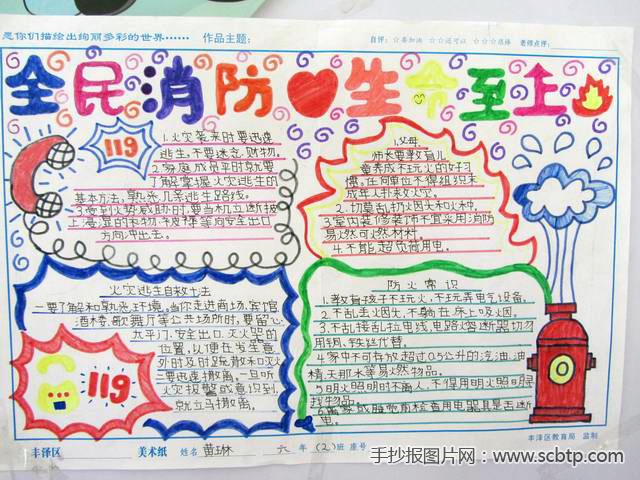 愿你们描绘出绚丽多彩的世界……
作品主题：
自评：☆要加油 ☆☆还可以 ☆☆☆很棒 老师点评：
全民消防♥生命至上
119
1.火灾袭来时要迅速
逃生,不要迷恋财物。
2.家庭成员平时就要
了解掌握火灾逃生的
基本方法,熟悉几条逃生路线。
3.受到火势威胁时,要当机立断披
上浸湿的衣物、
等向安全出口
方向冲出去。
1.父母
师长要教育儿
童养成不玩火的好习
惯。任何单位不得组织未
成年人扑救火灾。
2.切莫乱扔烟头和火种。
3.室内装修装饰不宜采用消防
易燃可燃材料。
4.不能超负荷用电。
火灾逃生自救十法
一要了解和熟悉环境。当你走进商场、宾馆、
酒楼、歌舞厅等公共场所时,要留心
太平门、安全出口、灭火器的
位置,以便在发生意
外时及时疏散和灭火
二要迅速撤离。一旦听
火灾报警或意识到
就立马撤离。
119
防火常识
1.教育孩子不玩火,不玩弄电气设备。
2.不乱丢烟头,不躺在床上吸烟。
3.不乱接乱拉电线,电路熔断器切勿
用铜、铁丝代替。
4.家中不可存放超过0.5公升的汽油、酒
精、天那水等易燃物品。
5.明火照明时不离人,不得用明火照明寻
找物品。
电。
丰泽区
美术纸
姓名 黄琳 六年(2)班 座号
丰泽区教育局 监制
手抄报图片网：www.scbtp.com